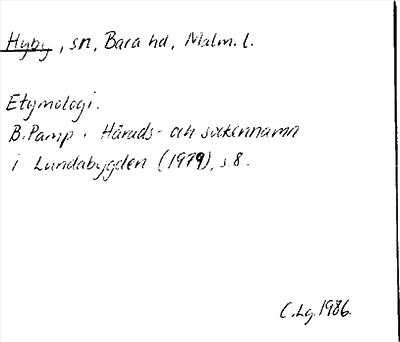 Hyby, sn, Bara hd, Malm. l.
Etymologi.
B. Pamp. Härads- och sockennamn
i Lundabygden (1979), s. 8.
C. Lg. 1986.